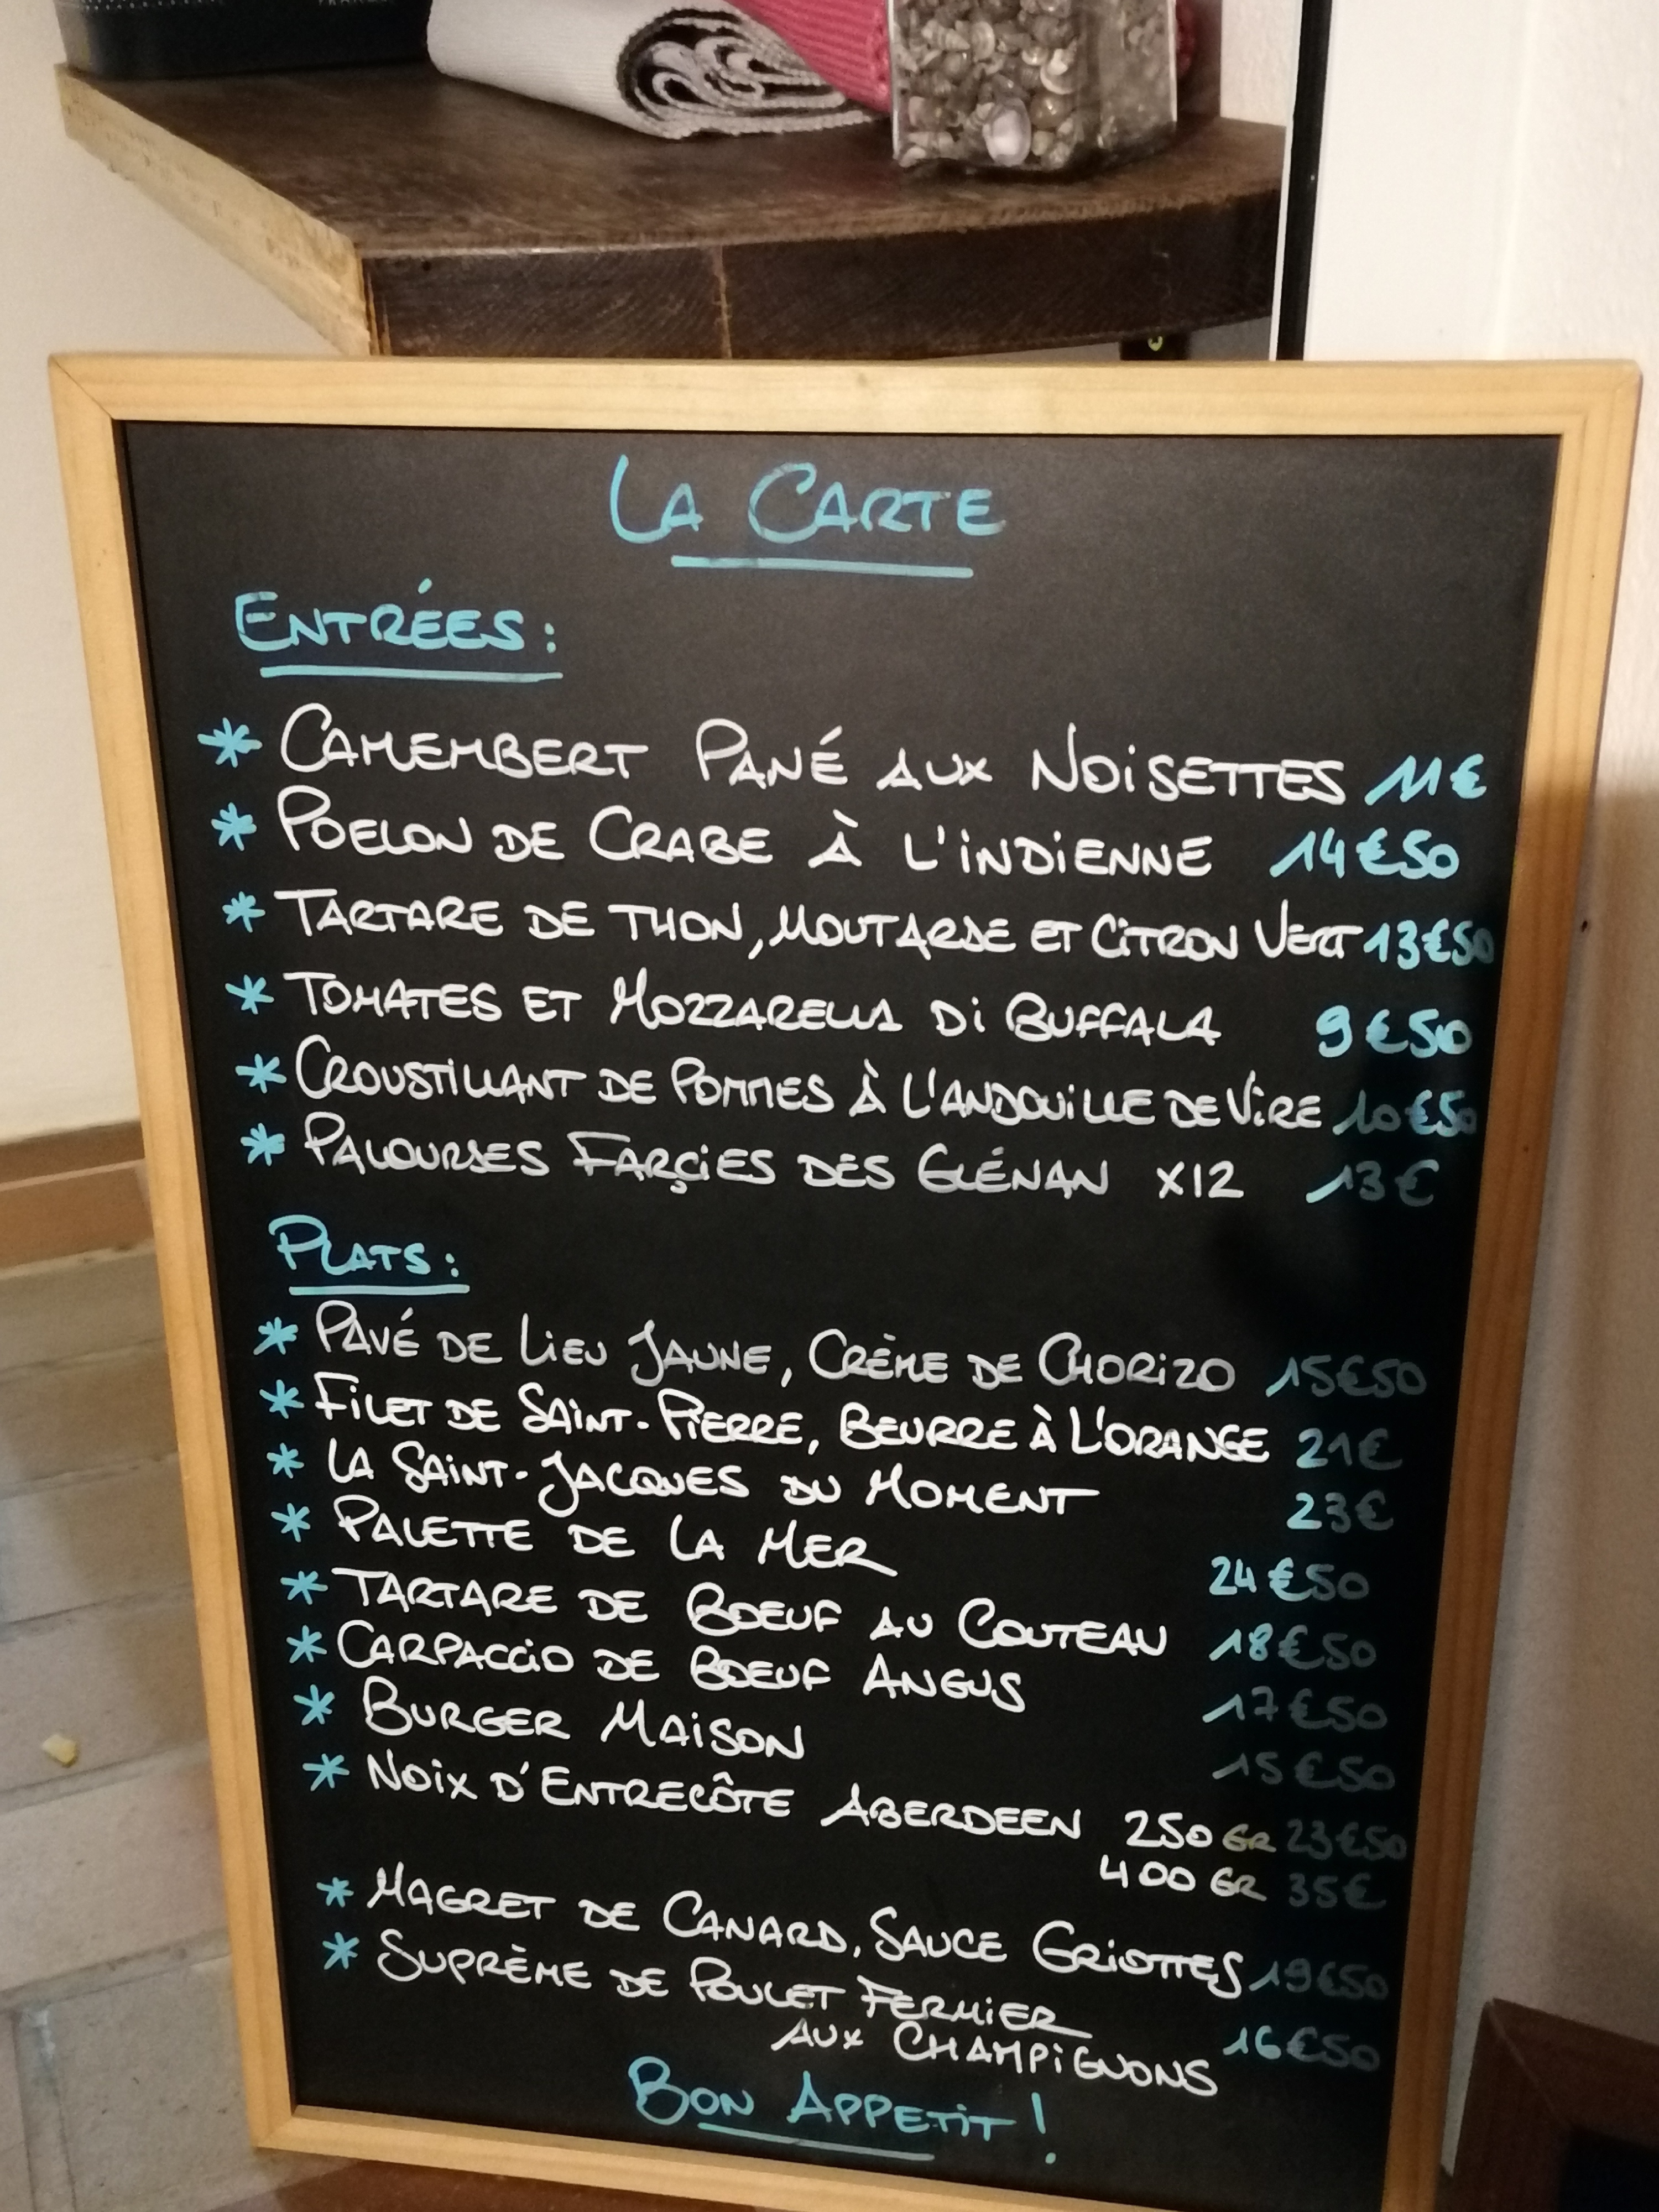 La Carte
Entrées:
* Camembert Pané aux Noisettes 11€
* Poelon de Crabe à l'indienne 14€50
* Tartare de thon, Moutarde et Citron Vert 13€50
* Tomates et Mozzarella Di Buffala 9€50
* Croustillant de Pommes à l'andouille de Vire 10€50
* Palourses Farçies des Glénan x12 13€
Plats:
* Pavé de Lieu Jaune, Crème de Chorizo 15€50
* Filet de Saint-Pierre, Beurre à L'orange 21€
* La Saint-Jacques du Moment 23€
* Palette de la Mer 24€50
* Tartare de Boeuf au Couteau 18€50
* Carpaccio de Boeuf Angus 17€50
* Burger Maison 15€50
* Noix d'Entrecôte Aberdeen 250 gr 23€50
400 gr 35€
* Magret de Canard, Sauce Griottes 19€50
* Suprème de Poulet Fermier
aux Champignons 16€50
Bon Appetit!